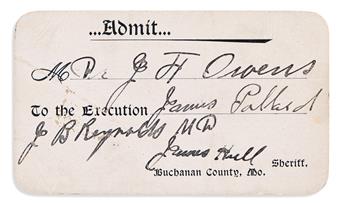 ...Admit...
M Dr J H Owens
To the Execution James Pollard
J B Reynolds MD
James Hull
Sheriff.
Buchanan County, Mo.